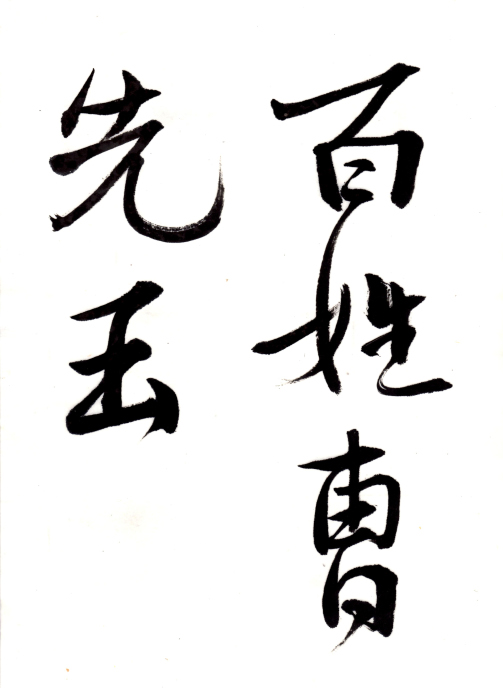 百姓曹
先五